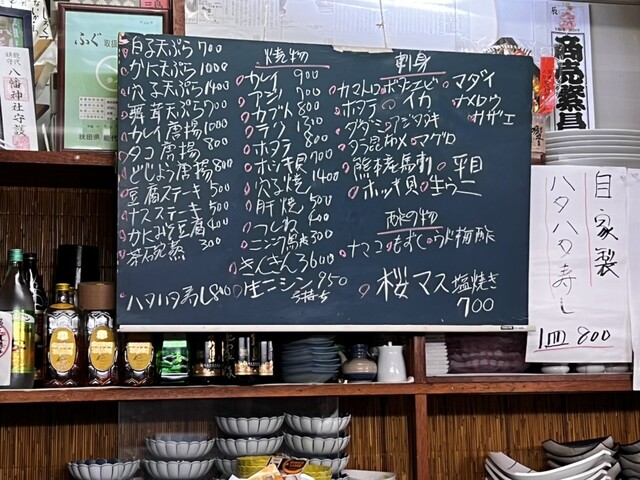 白子天ぷら 700
かに天ぷら 1000
穴子天ぷら 1400
舞茸天ぷら 700
カレイ唐揚 1000
タコ唐揚 800
どじょう唐揚 800
豆腐ステーキ 500
ナスステーキ 500
かにみそ豆腐 400
茶碗蒸 300
ハタハタ寿し 800
焼物
カレイ 900
アジ 700
カブト 800
ホタテ 800
ホッキ貝 700
穴子焼 1400
肝焼 500
つくね 400
きんきん 3600
生ニシン 950
刺身
カマトロ
ボタンエビ
マダイ
ホタテ
イカ
カメロウ
アジタタキ
サザエ
マグロ
熊本産馬刺
平目
ホッキ貝
生ウニ
酢の物
ナマコ
もずく
ウド梅酢
桜マス塩焼き
700
自家製
ハタハタ寿し
1皿 800
商売繁昌
ふぐ
八幡神社守護